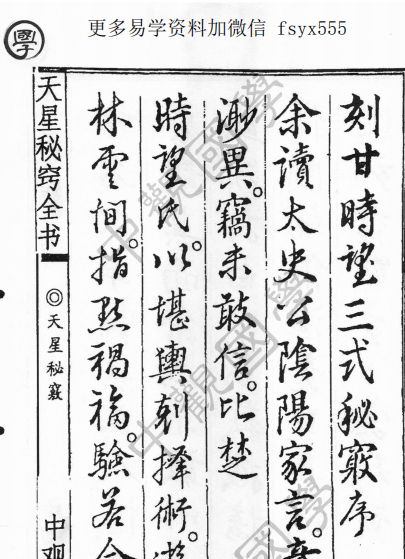 更多易学资料加微信 fsyx555
學
刻甘時望三式秘竅序
余讀太史公陰陽家言。
渺異。竊未敢信。比楚
時望氏。以堪輿剋擇術。
林雲間。指點禍福。驗若合
天星秘窍全书
◎天星秘竅
中观
中觀國學
中觀國學